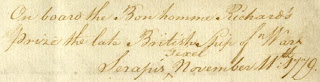 On board the Bon homme Richard's
Prize the late British Ship of War
Texel
Serapis, November 11th. 1779